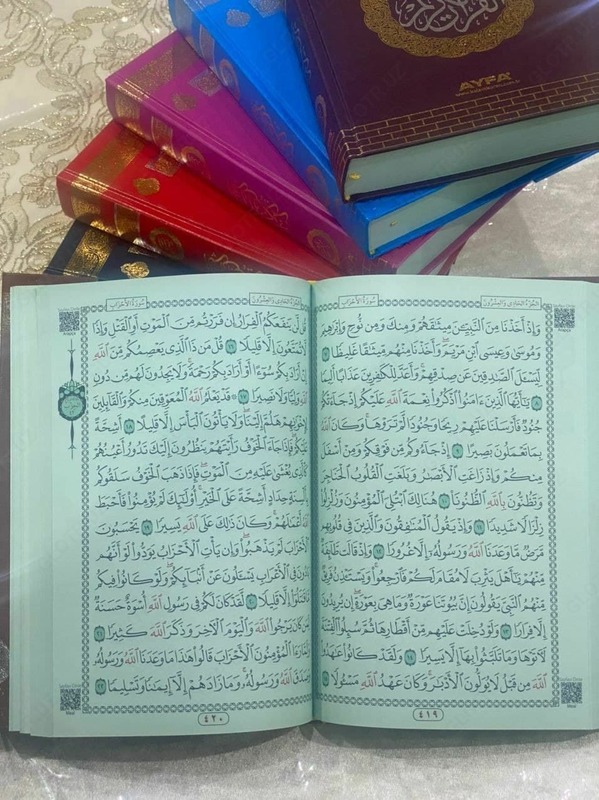 القرآن الكريم
AYFA
سُورَةُ الْأَحْزَابِ
الجُزْءُ الْحَادِي وَالْعِشْرُونَ
وَإِذْ أَخَذْنَا مِنَ ٱلنَّبِيِّـۧنَ مِيثَٰقَهُمْ وَمِنكَ وَمِن نُّوحٍ وَإِبْرَٰهِيمَ
وَمُوسَىٰ وَعِيسَى ٱبْنِ مَرْيَمَ ۖ وَأَخَذْنَا مِنْهُم مِّيثَٰقًا غَلِيظًا ٧
لِّيَسْـَٔلَ ٱلصَّٰدِقِينَ عَن صِدْقِهِمْ ۚ وَأَعَدَّ لِلْكَٰفِرِينَ عَذَابًا أَلِيمًا
٨ يَٰٓأَيُّهَا ٱلَّذِينَ ءَامَنُوا۟ ٱذْكُرُوا۟ نِعْمَةَ ٱللَّهِ عَلَيْكُمْ إِذْ جَآءَتْكُمْ
جُنُودٌ فَأَرْسَلْنَا عَلَيْهِمْ رِيحًا وَجُنُودًا لَّمْ تَرَوْهَا ۚ وَكَانَ ٱللَّهُ
بِمَا تَعْمَلُونَ بَصِيرًا ٩ إِذْ جَآءُوكُم مِّن فَوْقِكُمْ وَمِنْ أَسْفَلَ
مِنكُمْ وَإِذْ زَاغَتِ ٱلْأَبْصَٰرُ وَبَلَغَتِ ٱلْقُلُوبُ ٱلْحَنَاجِرَ
وَتَظُنُّونَ بِٱللَّهِ ٱلظُّنُونَا۠ ١٠ هُنَالِكَ ٱبْتُلِىَ ٱلْمُؤْمِنُونَ وَزُلْزِلُوا۟
زِلْزَالًا شَدِيدًا ١١ وَإِذْ يَقُولُ ٱلْمُنَٰفِقُونَ وَٱلَّذِينَ فِى قُلُوبِهِم
مَّرَضٌ مَّا وَعَدَنَا ٱللَّهُ وَرَسُولُهُۥٓ إِلَّا غُرُورًا ١٢ وَإِذْ قَالَت طَّآئِفَةٌ
مِّنْهُمْ يَٰٓأَهْلَ يَثْرِبَ لَا مُقَامَ لَكُمْ فَٱرْجِعُوا۟ ۚ وَيَسْتَـْٔذِنُ فَرِيقٌ
مِّنْهُمُ ٱلنَّبِىَّ يَقُولُونَ إِنَّ بُيُوتَنَا عَوْرَةٌ وَمَا هِىَ بِعَوْرَةٍ ۖ إِن يُرِيدُونَ
إِلَّا فِرَارًا ١٣ وَلَوْ دُخِلَتْ عَلَيْهِم مِّنْ أَقْطَارِهَا ثُمَّ سُئِلُوا۟ ٱلْفِتْنَةَ
لَـَٔاتَوْهَا وَمَا تَلَبَّثُوا۟ بِهَآ إِلَّا يَسِيرًا ١٤ وَلَقَدْ كَانُوا۟ عَٰهَدُوا۟
ٱللَّهَ مِن قَبْلُ لَا يُوَلُّونَ ٱلْأَدْبَٰرَ ۚ وَكَانَ عَهْدُ ٱللَّهِ مَسْـُٔولًا ١٥
٤١٩
الجُزْءُ الْحَادِي وَالْعِشْرُونَ
سُورَةُ الْأَحْزَابِ
قُل لَّن يَنفَعَكُمُ ٱلْفِرَارُ إِن فَرَرْتُم مِّنَ ٱلْمَوْتِ أَوِ ٱلْقَتْلِ وَإِذًا
لَّا تُمَتَّعُونَ إِلَّا قَلِيلًا ١٦ قُلْ مَن ذَا ٱلَّذِى يَعْصِمُكُم مِّنَ ٱللَّهِ
إِنْ أَرَادَ بِكُمْ سُوٓءًا أَوْ أَرَادَ بِكُمْ رَحْمَةً ۚ وَلَا يَجِدُونَ لَهُم مِّن دُونِ
ٱللَّهِ وَلِيًّا وَلَا نَصِيرًا ١٧ ۞ قَدْ يَعْلَمُ ٱللَّهُ ٱلْمُعَوِّقِينَ مِنكُمْ وَٱلْقَآئِلِينَ
لِإِخْوَٰنِهِمْ هَلُمَّ إِلَيْنَا ۖ وَلَا يَأْتُونَ ٱلْبَأْسَ إِلَّا قَلِيلًا ١٨ أَشِحَّةً
عَلَيْكُمْ ۖ فَإِذَا جَآءَ ٱلْخَوْفُ رَأَيْتَهُمْ يَنظُرُونَ إِلَيْكَ تَدُورُ أَعْيُنُهُمْ
كَٱلَّذِى يُغْشَىٰ عَلَيْهِ مِنَ ٱلْمَوْتِ ۖ فَإِذَا ذَهَبَ ٱلْخَوْفُ سَلَقُوكُم
بِأَلْسِنَةٍ حِدَادٍ أَشِحَّةً عَلَى ٱلْخَيْرِ ۚ أُو۟لَٰٓئِكَ لَمْ يُؤْمِنُوا۟ فَأَحْبَطَ
ٱللَّهُ أَعْمَٰلَهُمْ ۚ وَكَانَ ذَٰلِكَ عَلَى ٱللَّهِ يَسِيرًا ١٩ يَحْسَبُونَ
ٱلْأَحْزَابَ لَمْ يَذْهَبُوا۟ ۖ وَإِن يَأْتِ ٱلْأَحْزَابُ يَوَدُّوا۟ لَوْ أَنَّهُم
بَادُونَ فِى ٱلْأَعْرَابِ يَسْـَٔلُونَ عَنْ أَنۢبَآئِكُمْ ۖ وَلَوْ كَانُوا۟ فِيكُم
مَّا قَٰتَلُوٓا۟ إِلَّا قَلِيلًا ٢٠ لَّقَدْ كَانَ لَكُمْ فِى رَسُولِ ٱللَّهِ أُسْوَةٌ حَسَنَةٌ
لِّمَن كَانَ يَرْجُوا۟ ٱللَّهَ وَٱلْيَوْمَ ٱلْـَٔاخِرَ وَذَكَرَ ٱللَّهَ كَثِيرًا ٢١
وَلَمَّا رَءَا ٱلْمُؤْمِنُونَ ٱلْأَحْزَابَ قَالُوا۟ هَٰذَا مَا وَعَدَنَا ٱللَّهُ وَرَسُولُهُۥ
وَصَدَقَ ٱللَّهُ وَرَسُولُهُۥ ۚ وَمَا زَادَهُمْ إِلَّآ إِيمَٰنًا وَتَسْلِيمًا ٢٢
٤٢٠